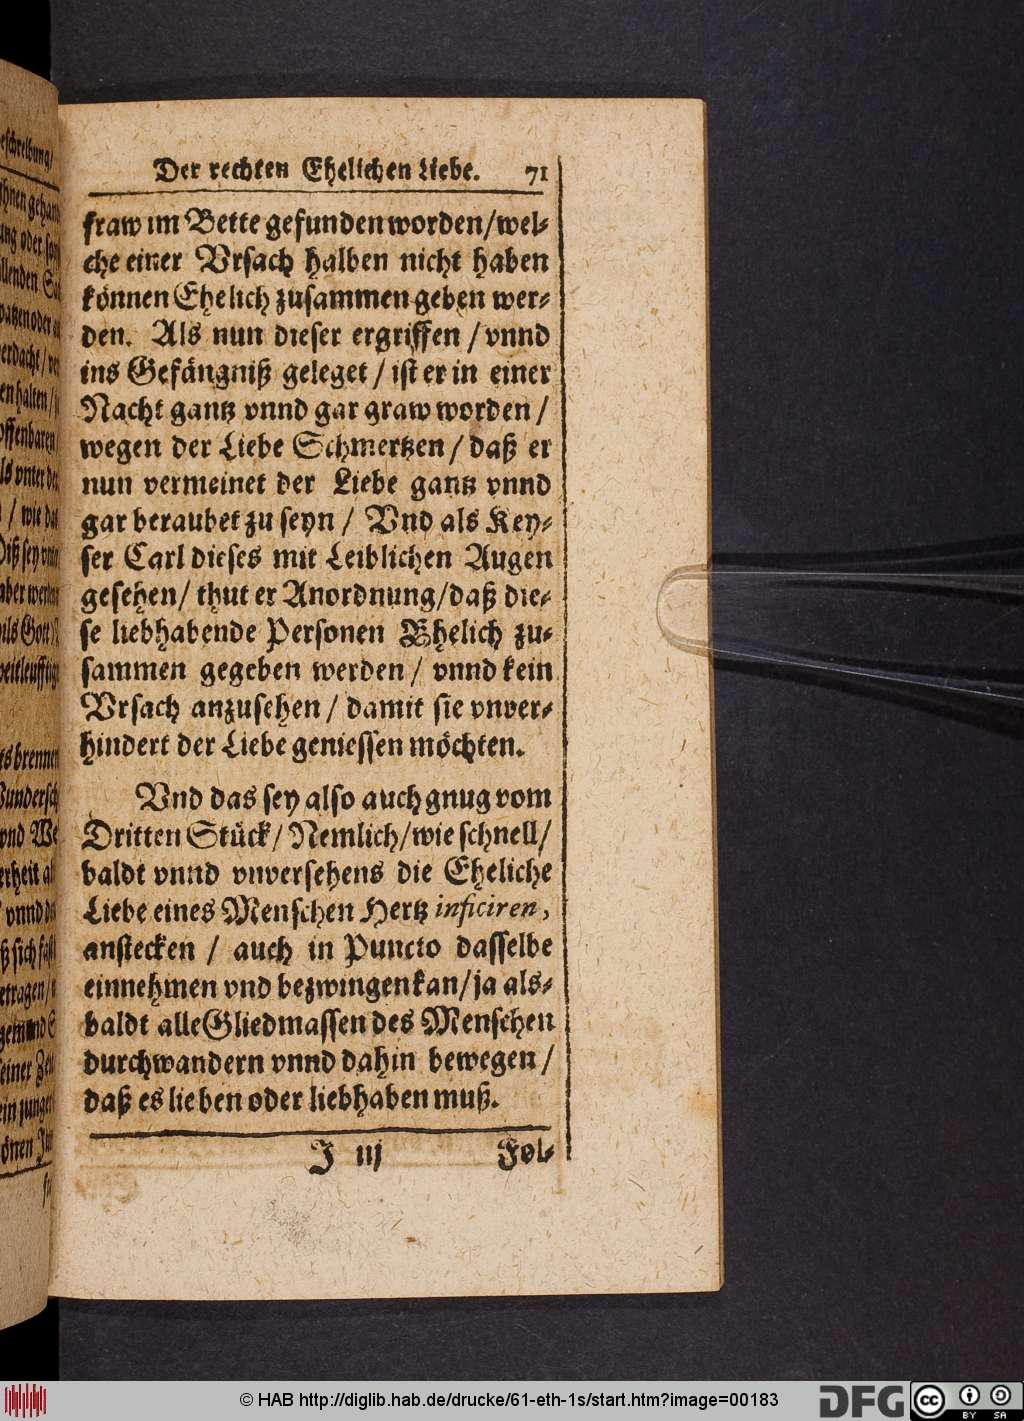 Der rechten Ehelichen Liebe. 71
fraw im Bette gefunden worden/wel-
che einer Vrsach halben nicht haben
können Ehelich zusammen geben wer-
den. Als nun dieser ergriffen / vnnd
ins Gefängniß geleget / ist er in einer
Nacht gantz vnnd gar graw worden /
wegen der Liebe Schmertzen / daß er
nun vermeinet der Liebe gantz vnnd
gar beraubet zu seyn / Vnd als Key-
ser Carl dieses mit Leiblichen Augen
gesehen/ thut er Anordnung/daß die-
se liebhabende Personen Ehelich zu-
sammen gegeben werden / vnnd kein
Vrsach anzusehen / damit sie vnver-
hindert der Liebe geniessen möchten.
Vnd das sey also auch gnug vom
Dritten Stück/ Nemlich/wie schnell/
baldt vnnd vnversehens die Eheliche
Liebe eines Menschen Hertz inficiren,
anstecken / auch in Puncto dasselbe
einnehmen vnd bezwingen kan/ja als-
baldt alle Gliedmassen des Menschen
durchwandern vnnd dahin bewegen /
daß es lieben oder liebhaben muß.
J iij Fol-
© HAB http://diglib.hab.de/drucke/61-eth-1s/start.htm?image=00183
DFG
cc BY SA